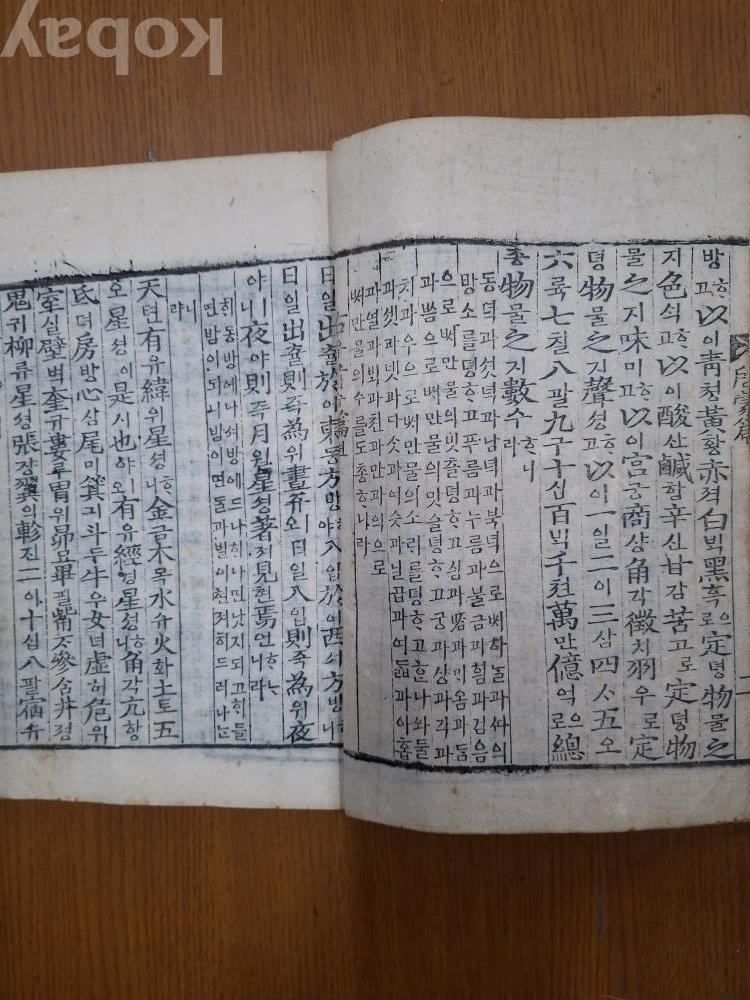 Kobay
방ᄒᆞ고以이靑쳥黃황赤젹白ᄇᆡᆨ黑흑으로定뎡物물之
지色ᄉᆡᆨᄒᆞ고以이酸산鹹함辛신甘감苦고로定뎡物
물之지味미ᄒᆞ고以이宮궁商샹角각徵치羽우로定
뎡物물之지聲셩ᄒᆞ고以이一일二이三삼四ᄉᆞ五오
六륙七칠八팔九구十십百ᄇᆡᆨ千쳔萬만億억으로總
총物물之지數수ᄒᆞᄂᆞ니라
동녁과셧녁과남녁과북녁으로ᄡᅥ하ᄂᆞᆯ과ᄯᅡ의
망소를뎡ᄒᆞ고푸름과누름과불금과힘과검음
으로ᄡᅥ만물의빗츨뎡ᄒᆞ고심과ᄧᆞᆷ과ᄆᆡ옴과ᄃᆞᆷ
과씀으로ᄡᅥ만물의맛슬뎡ᄒᆞ고궁과샹과각과
치과우으로ᄡᅥ만물의소리를뎡ᄒᆞ고ᄒᆞ나와둘
과셋과넷과다ᄉᆞᆺ과여ᄉᆞᆺ과닐곱과여ᄃᆞᆲ과아홉
과열과ᄇᆡᆨ과쳔과만과억으로
ᄡᅥ만물의수를도총ᄒᆞᄂᆞ니라
日일出츌於어東동方방ᄒᆞ야入입於어西셔方방ᄒᆞ니
日일出츌則즉為위晝쥬ㅣ오日일入입則즉為위夜
야ㅣ니夜야則즉月월星셩著져見현焉언ᄒᆞᄂᆞ니라
ᄒᆡ동방에나셔방에드나니ᄒᆡ나면낫지되고ᄒᆡ들
면밤이되니밤이면돌과별이쳔져히드러나ᄂᆞ
니라
天텬有유緯위星셩ᄒᆞ니金금木목水슈火화土토五
오星셩이是시也야ㅣ오有유經경星셩ᄒᆞ니角각亢항
氐뎌房방心심尾미箕긔斗두牛우女녀虛허危위
室실壁벽奎규婁루胃위昴묘畢필觜ᄌᆞ參ᄉᆞᆷ井졍
鬼귀柳류星셩張쟝翼익軫진二이十십八팔宿슈